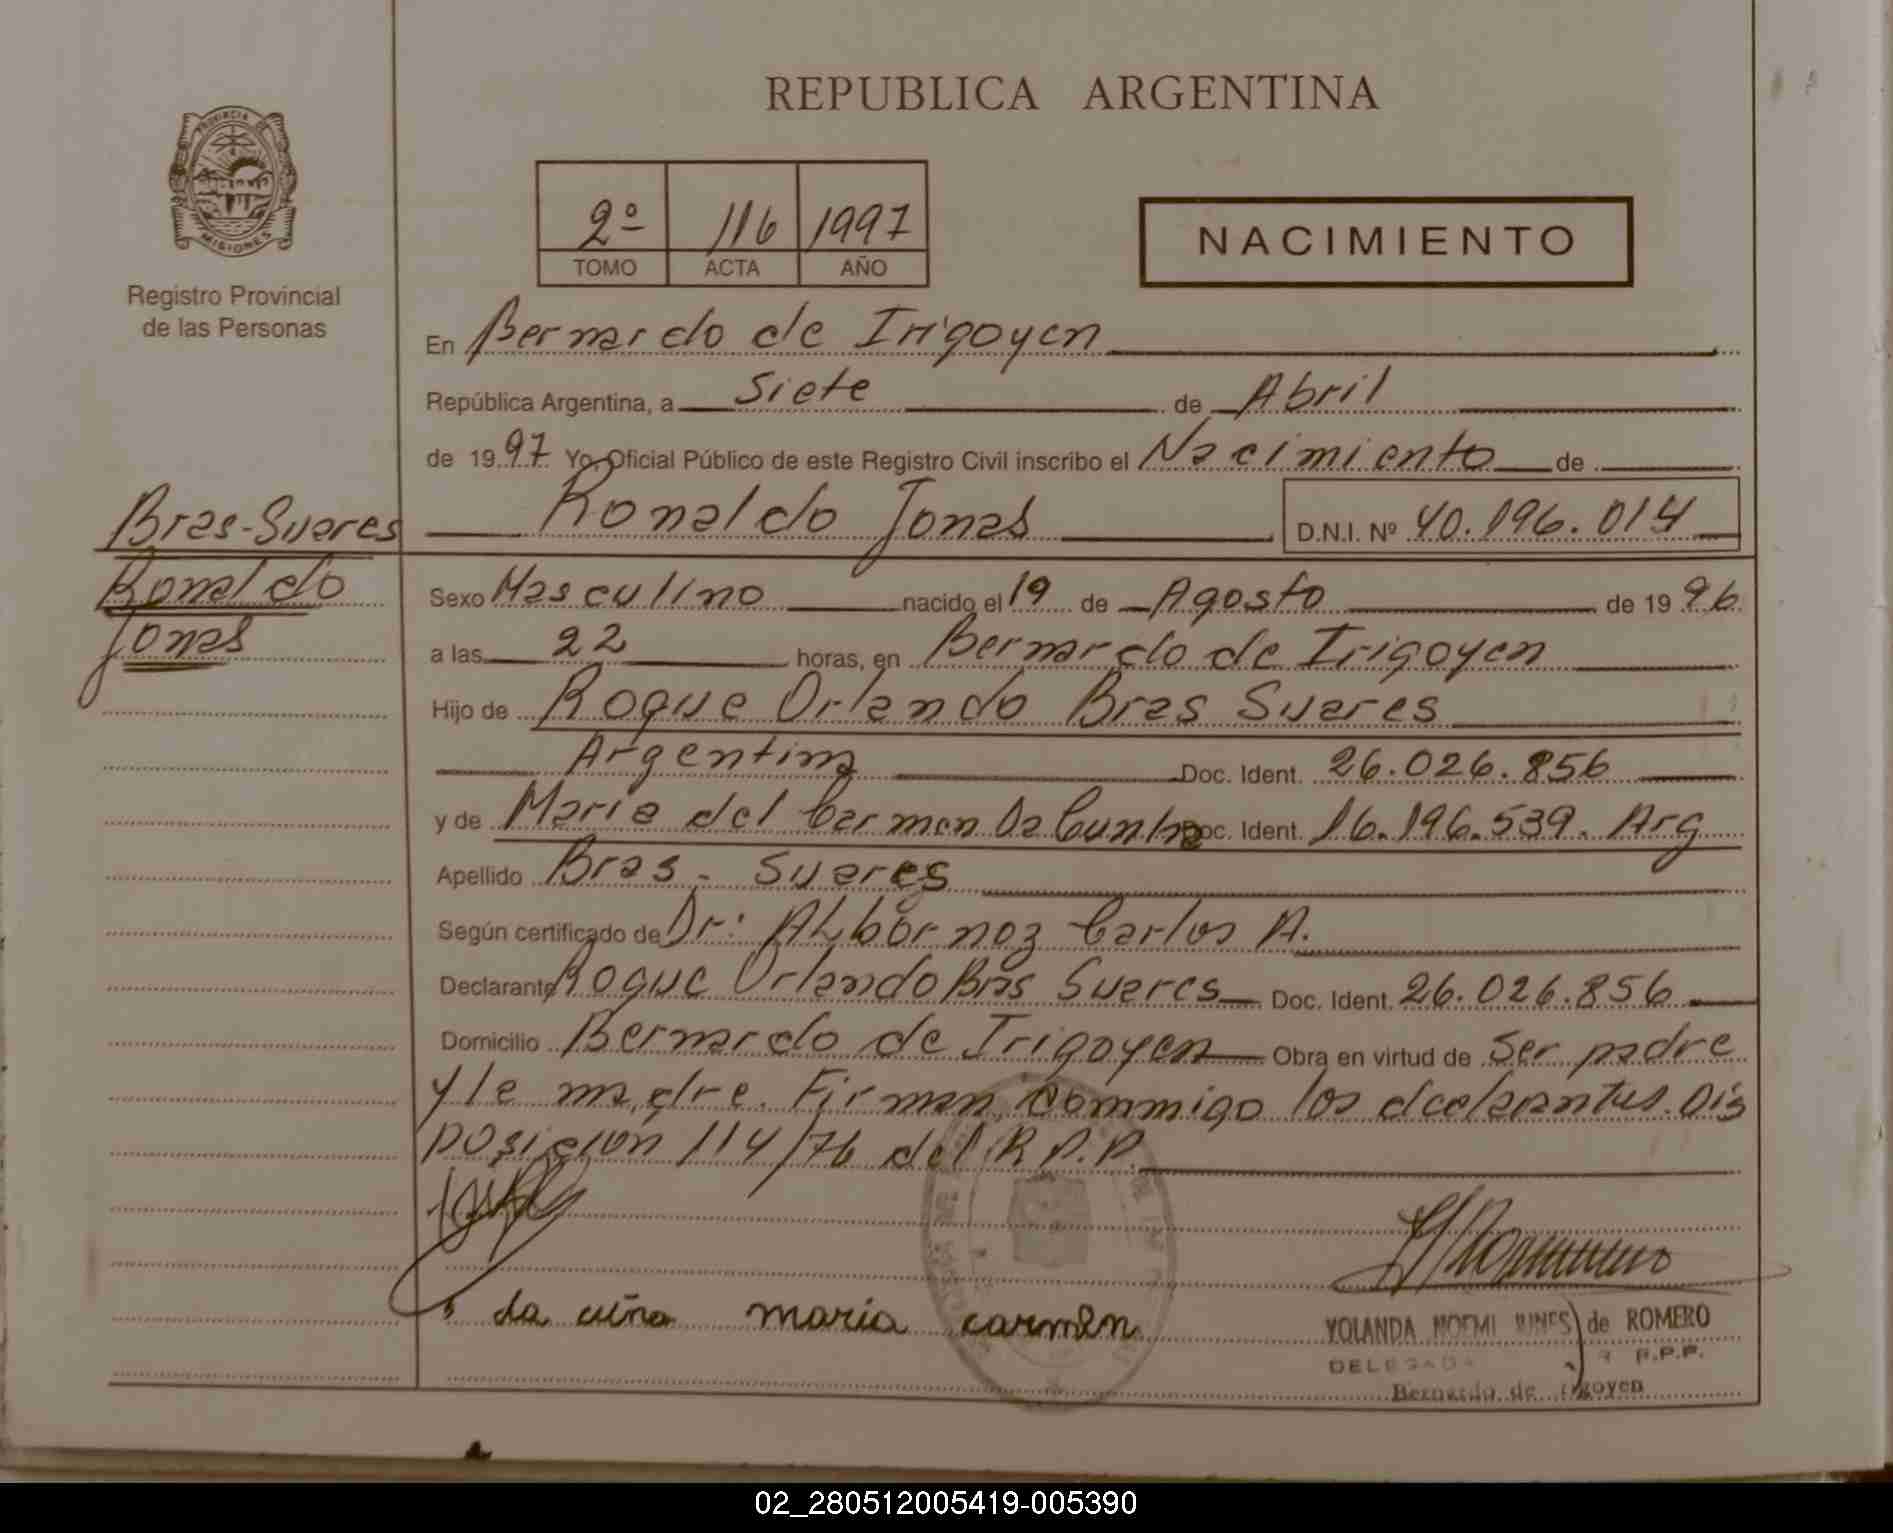 REPUBLICA ARGENTINA
PROVINCIA DE
MISIONES
Registro Provincial
de las Personas
2º 116 1997
TOMO ACTA AÑO
NACIMIENTO
En Bernardo de Irigoyen
República Argentina, a Siete de Abril
de 1997 Yo Oficial Público de este Registro Civil inscribo el Nacimiento de
Bras-Suares
Ronaldo Jonas D.N.I. Nº 40.196.014
Ronaldo
Jonas
Sexo Masculino nacido el 19 de Agosto de 1996
a las 22 horas, en Bernardo de Irigoyen
Hijo de Roque Orlando Bras Suares
Argentina Doc. Ident. 26.026.856
y de Maria del Carmen Da Cunha Doc. Ident. 16.196.539. Arg
Apellido Bras - Suares
Según certificado de Dr: Albornoz Carlos A.
Declarante Roque Orlando Bras Suares Doc. Ident. 26.026.856
Domicilio Bernardo de Irigoyen Obra en virtud de Ser padre
y la madre. Firman commigo los declarantes. Dis
posicion 114/76 del R.P.P.
da cuña maria carmen
YOLANDA NOEMI de ROMERO
DELEGADA R.P.P.
Bernardo de Irigoyen
02_280512005419-005390